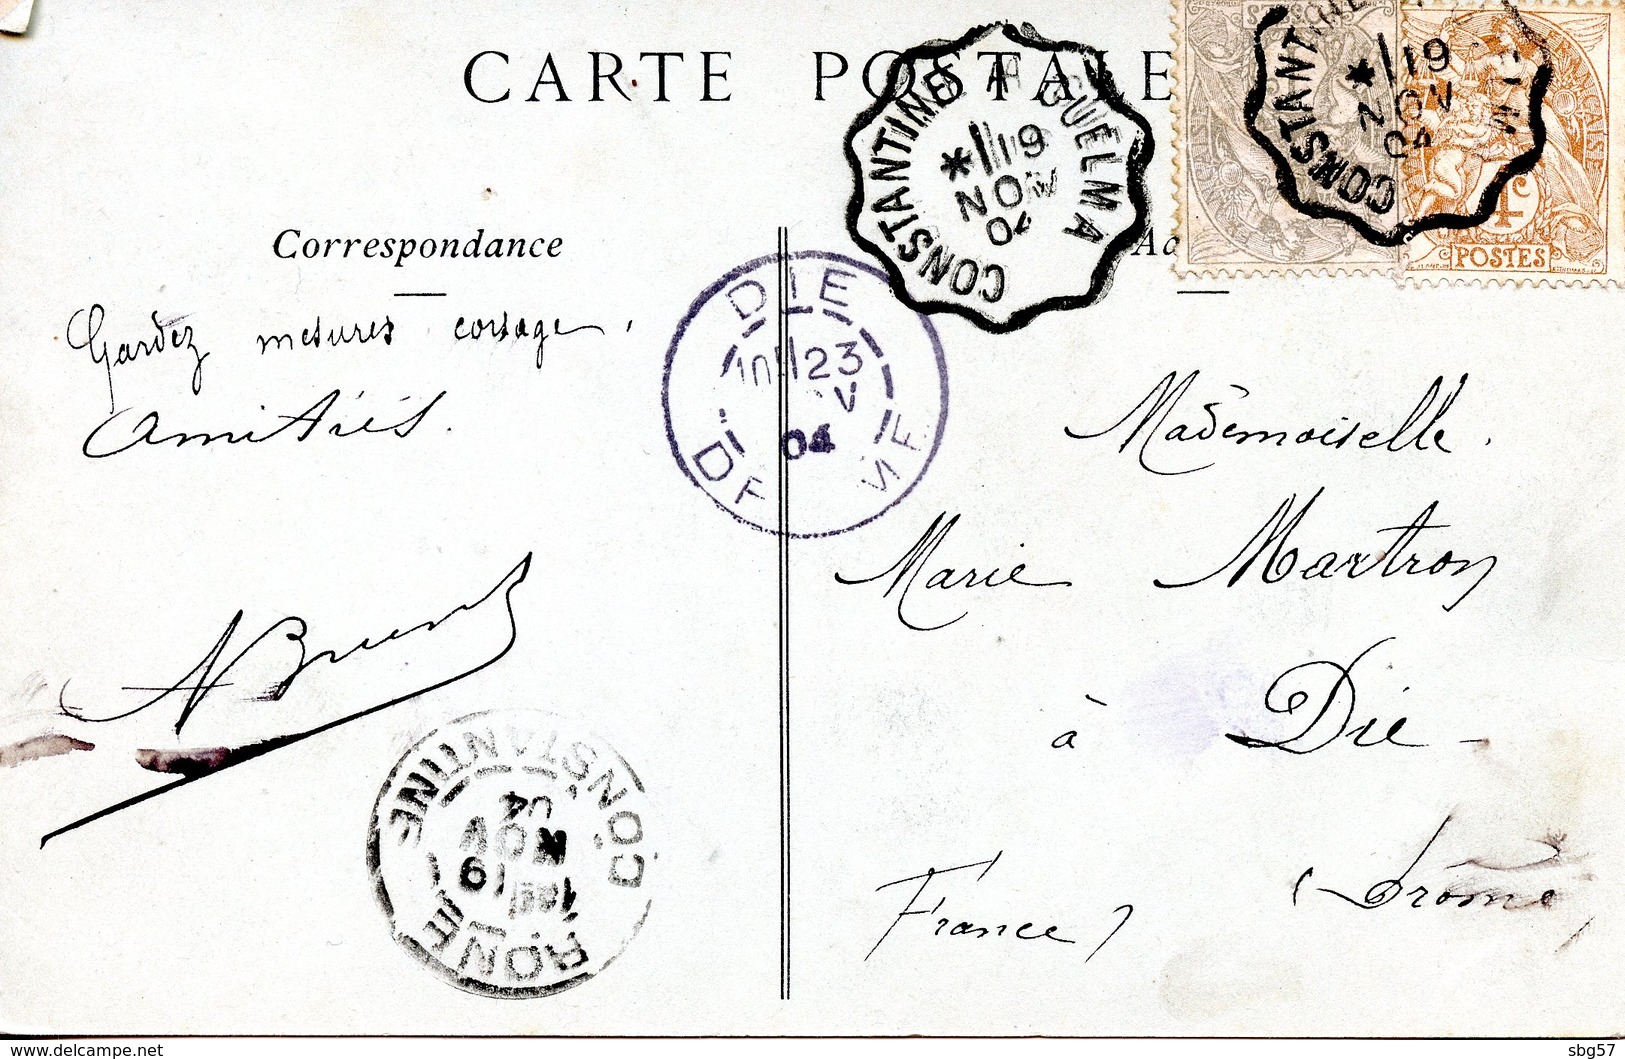 CARTE POSTALE
CONSTANTINE A GUELMA
19
NOV
04
CONSTANTINE
19
NOV
04
4c
POSTES
Correspondance
Gardez mesures corsage.
Amitiés.
DIE
23
04
Mademoiselle.
Marie Martron
à Die -
(Drome,
France)
CONSTANTINE
04
NOV
19
BONE
https://www.delcampe.net
sbg57